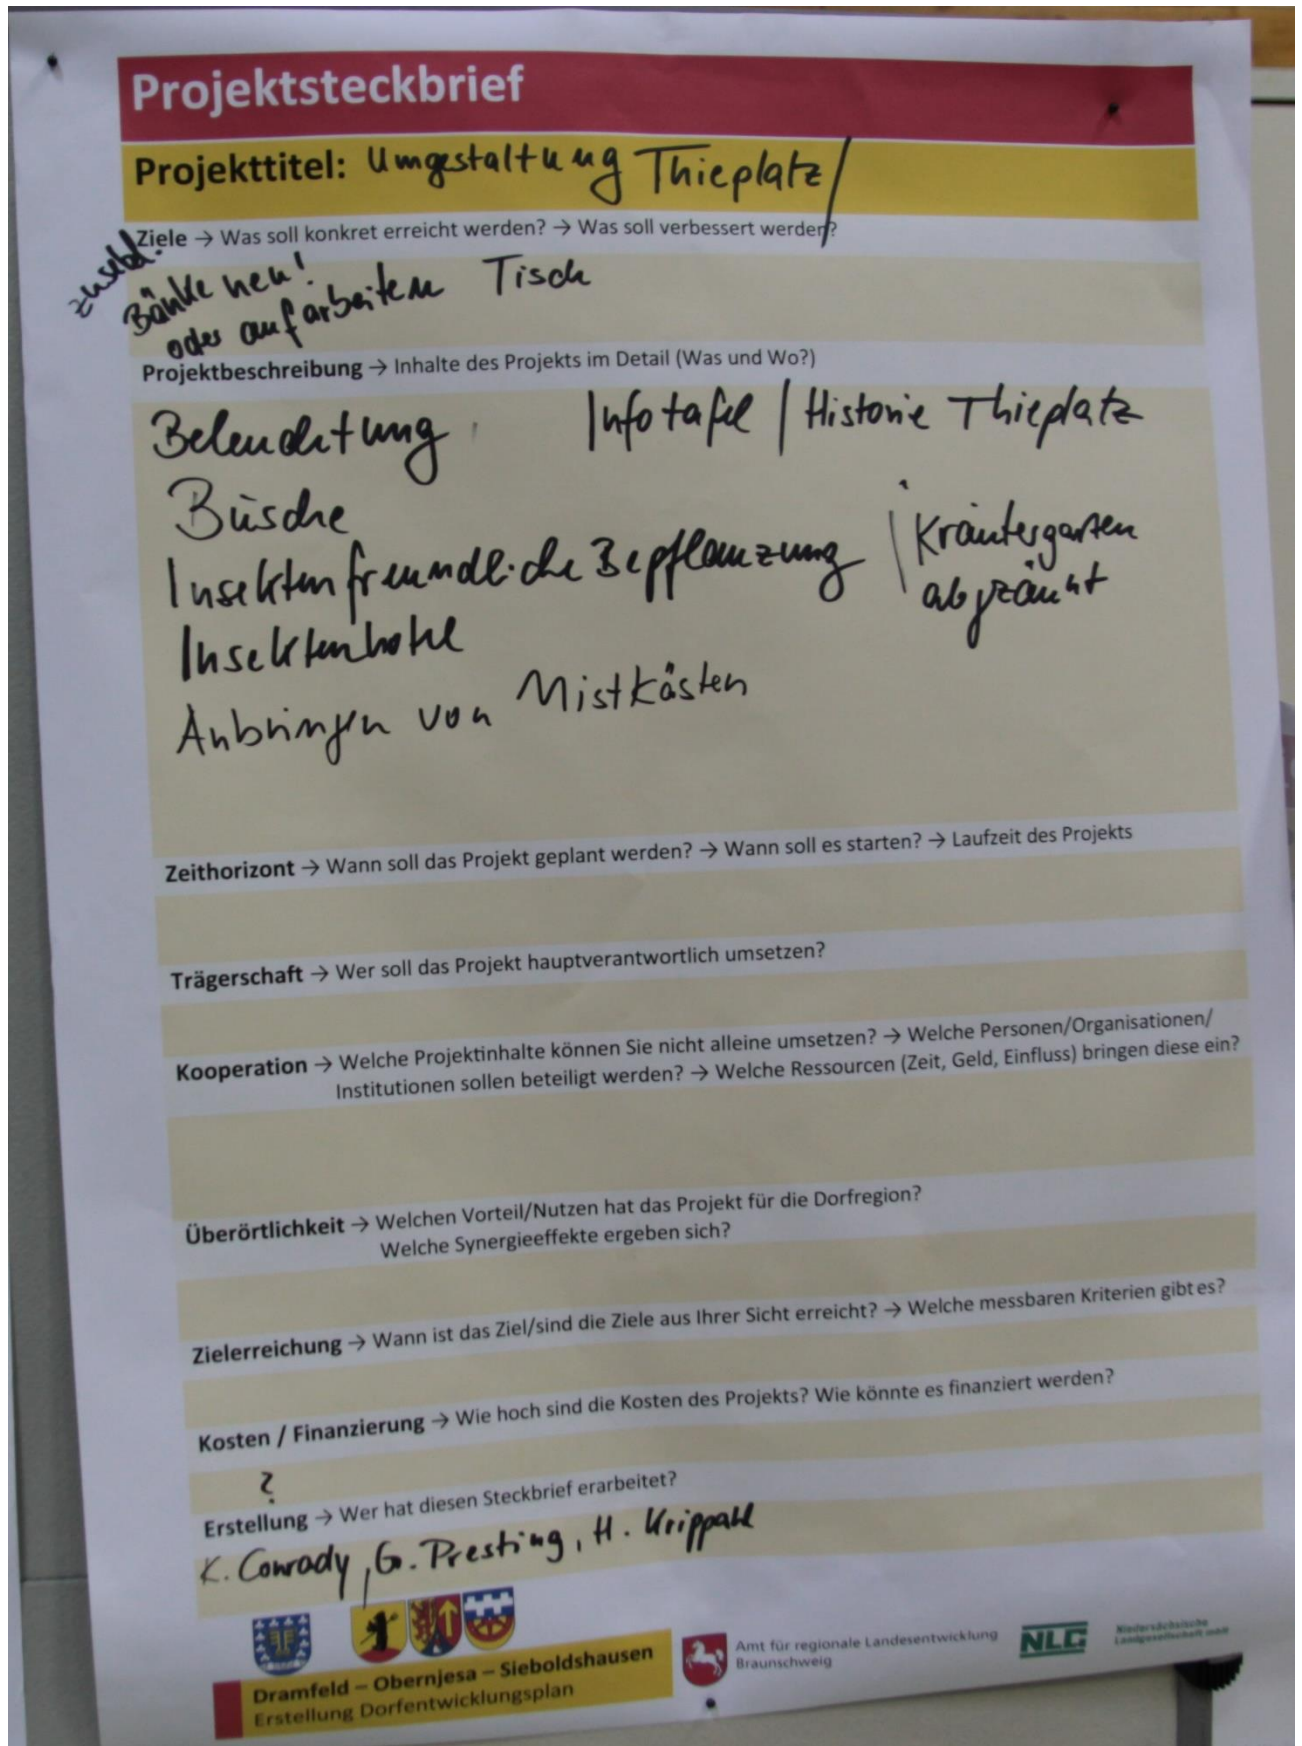 Projektsteckbrief
Projekttitel: Umgestaltung Thieplatz/
Ziele → Was soll konkret erreicht werden? → Was soll verbessert werden?
zusätzl.
Bänke neu! Tisch
oder aufarbeiten
Projektbeschreibung → Inhalte des Projekts im Detail (Was und Wo?)
Beleuchtung Infotafel / Historie Thieplatz
Büsche
Insektenfreundliche Bepflanzung / Kräutergarten
abgezäunt
Insektenhotel
Anbringen von Mistkästen
Zeithorizont → Wann soll das Projekt geplant werden? → Wann soll es starten? → Laufzeit des Projekts
Trägerschaft → Wer soll das Projekt hauptverantwortlich umsetzen?
Kooperation → Welche Projektinhalte können Sie nicht alleine umsetzen? → Welche Personen/Organisationen/
Institutionen sollen beteiligt werden? → Welche Ressourcen (Zeit, Geld, Einfluss) bringen diese ein?
Überörtlichkeit → Welchen Vorteil/Nutzen hat das Projekt für die Dorfregion?
Welche Synergieeffekte ergeben sich?
Zielerreichung → Wann ist das Ziel/sind die Ziele aus Ihrer Sicht erreicht? → Welche messbaren Kriterien gibt es?
Kosten / Finanzierung → Wie hoch sind die Kosten des Projekts? Wie könnte es finanziert werden?
?
Erstellung → Wer hat diesen Steckbrief erarbeitet?
K. Conrady, G. Presting, H. Krippahl
Dramfeld – Obernjesa – Sieboldshausen
Erstellung Dorfentwicklungsplan
Amt für regionale Landesentwicklung
Braunschweig
NLG
Niedersächsische
Landgesellschaft mbH